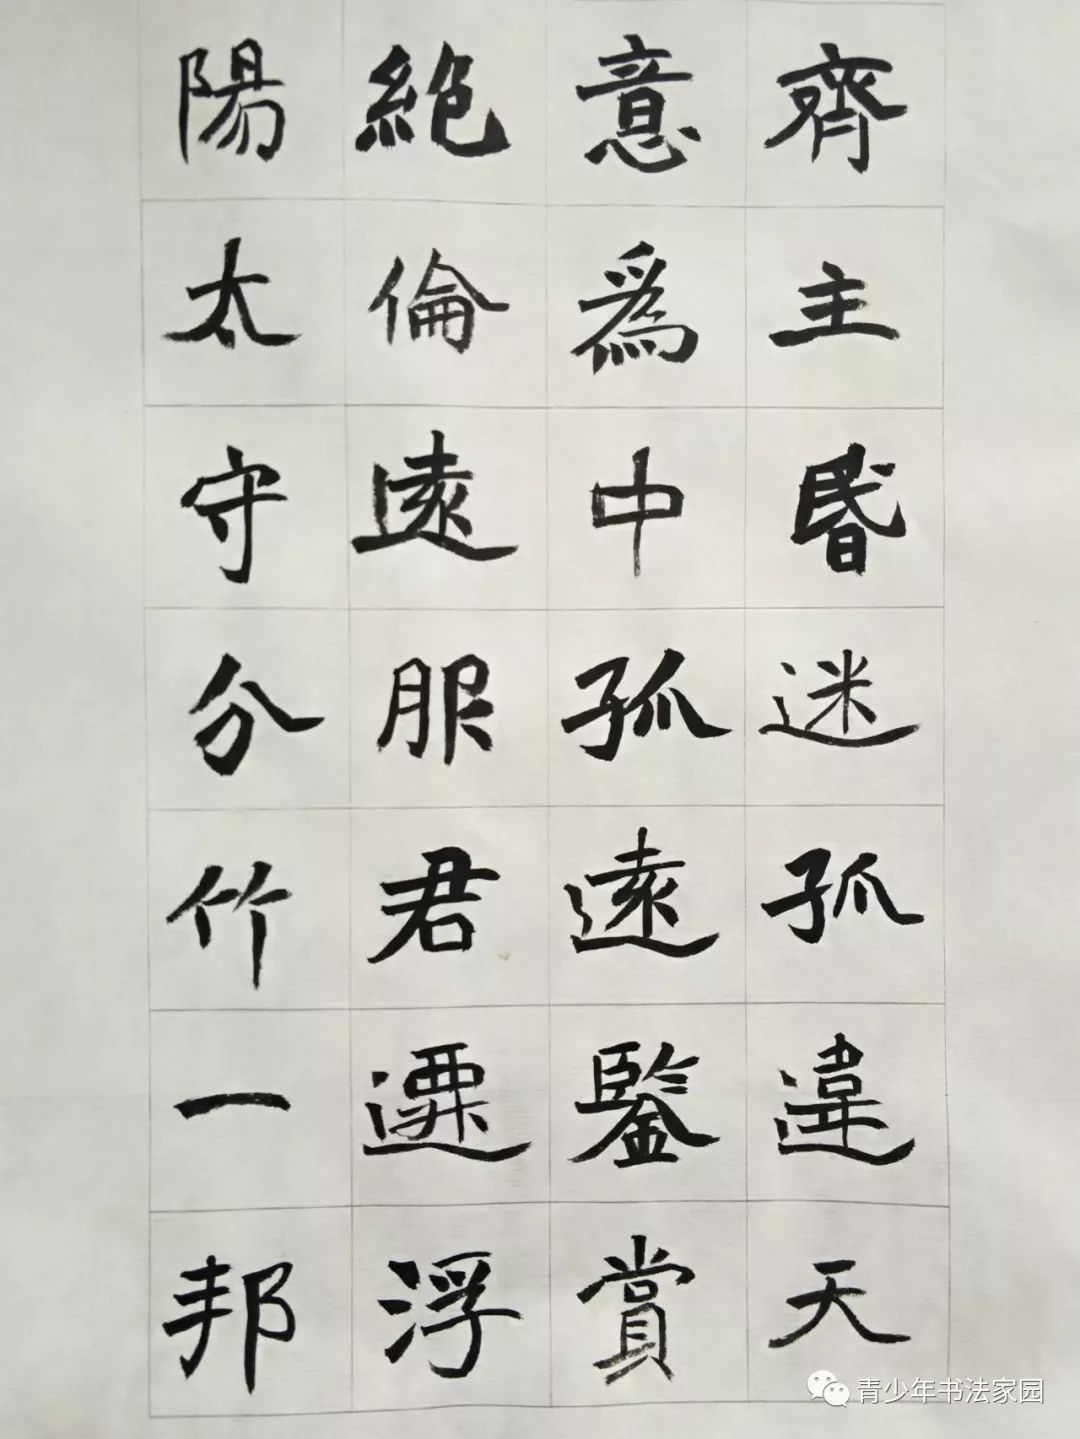 齊主昏迷孤違天
意爲中孤遠鑒賞
絕倫遠服君遷浮
陽太守分竹一邦
青少年书法家园